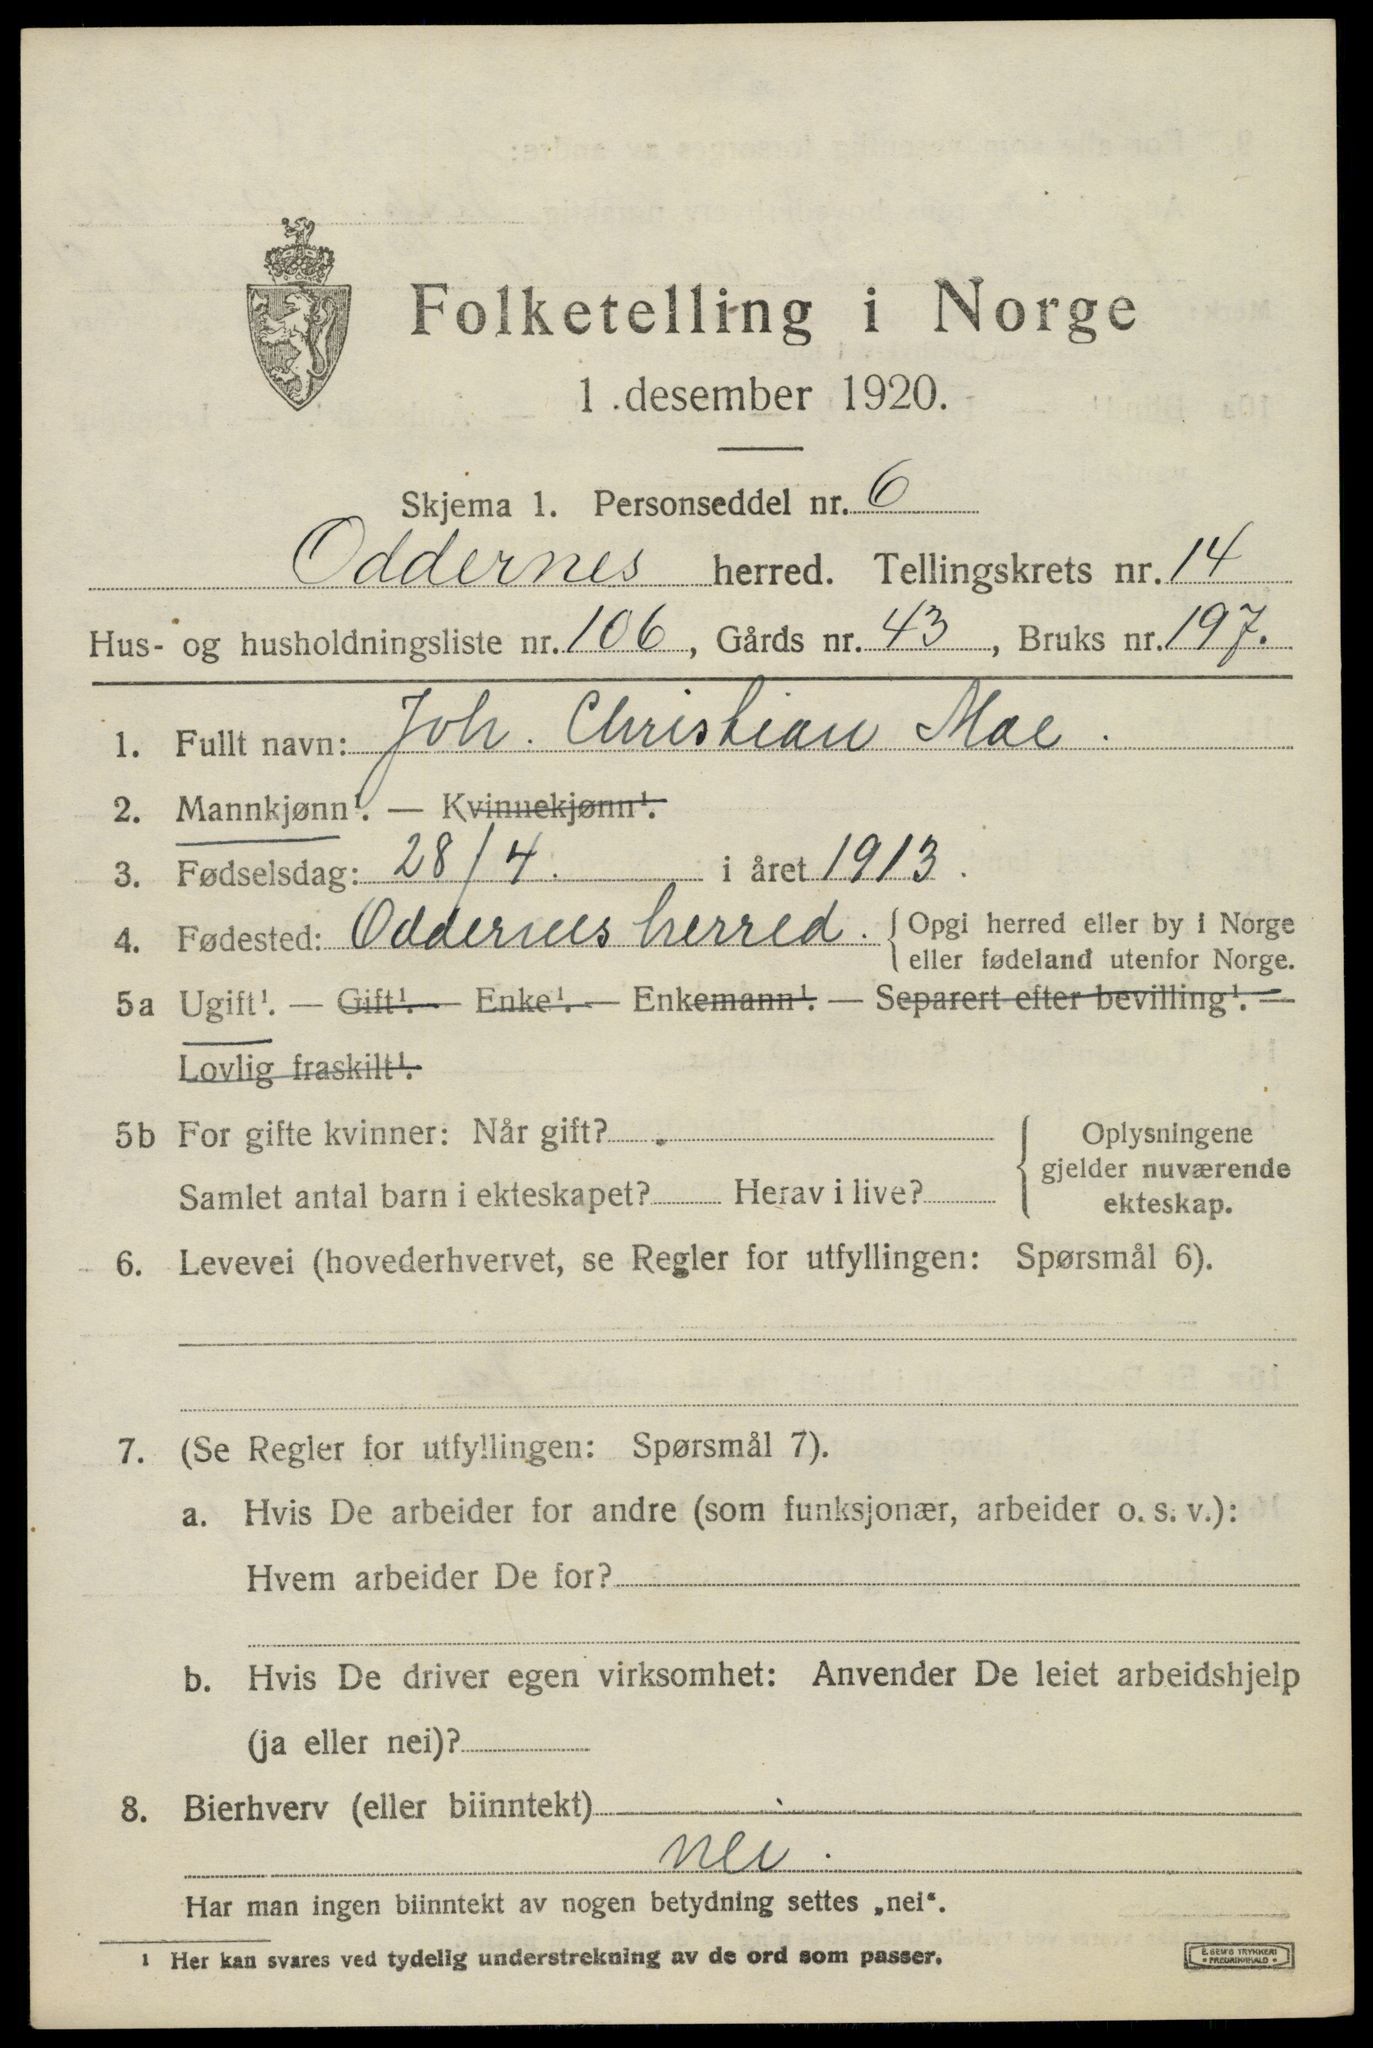 Folketelling i Norge
1 .desember 1920.
Skjema 1. Personseddel nr. 6
Oddernes herred. Tellingskrets nr. 14
Hus- og husholdningsliste nr. 106, Gårds nr. 43, Bruks nr. 197.
1. Fullt navn: Joh. Christian Moe.
2. Mannkjønn¹. — Kvinnekjønn¹.
3. Fødselsdag: 28/4. i året 1913.
4. Fødested: Oddernes herred. { Opgi herred eller by i Norge
eller fødeland utenfor Norge.
5a Ugift¹. — Gift¹. — Enke¹. — Enkemann¹. — Separert efter bevilling¹. —
Lovlig fraskilt¹.
5b For gifte kvinner: Når gift?
Samlet antal barn i ekteskapet? Herav i live?
{ Oplysningene
gjelder nuværende
ekteskap.
6. Levevei (hovederhvervet, se Regler for utfyllingen: Spørsmål 6).
7. (Se Regler for utfyllingen: Spørsmål 7).
a. Hvis De arbeider for andre (som funksjonær, arbeider o. s. v.):
Hvem arbeider De for?
b. Hvis De driver egen virksomhet: Anvender De leiet arbeidshjelp
(ja eller nei)?
8. Bierhverv (eller biinntekt)
nei.
Har man ingen biinntekt av nogen betydning settes „nei“.
¹ Her kan svares ved tydelig understrekning av de ord som passer.
E. SEM'S TRYKKERI
• FREDRIKSHALD •